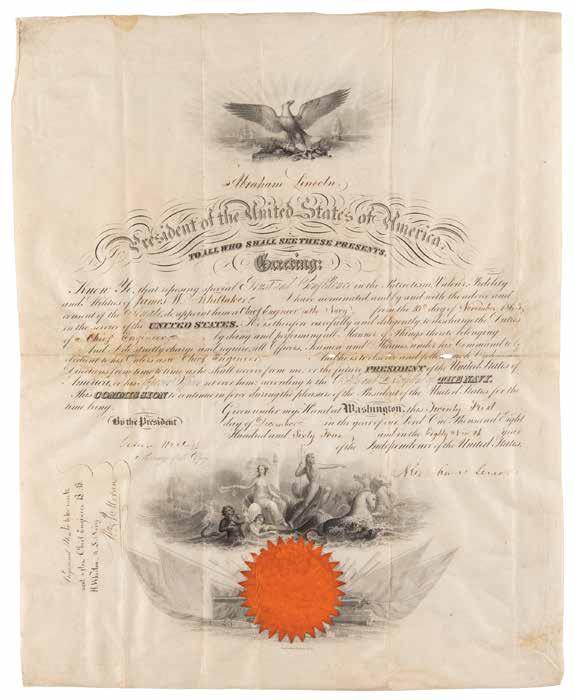 Abraham Lincoln,
President of the United States of America.
TO ALL WHO SHALL SEE THESE PRESENTS,
Greeting:
Know Ye, that reposing special Trust and Confidence in the Patriotism, Valour, Fidelity
and Abilities of James W. Whittaker I have nominated and by and with the advice and
consent of the Senate, do appoint him a Chief Engineer in the Navy from the day of November 1863,
in the service of the UNITED STATES. He is therefore carefully and diligently to discharge the Duties
of a Chief Engineer by doing and performing all Manner of Things thereto belonging
And I do strictly charge and require all Officers, Seamen and Marines under his Command to be
obedient to his Orders as a Chief Engineer And he is to observe and follow such Orders and
Directions from time to time as he shall receive from me, or the future PRESIDENT of the United States of
America, or his Officer set over him, according to the Discipline of THE NAVY.
This COMMISSION to continue in force during the pleasure of the President of the United States for the
time being.
Given under my Hand at Washington this Twenty First
By the President day of December in the year of our Lord One Thousand Eight
Hundred and Sixty Four and in the Eighty Ninth year
of the Independence of the United States.
Abraham Lincoln
Secretary of the Navy
Chief Engineer